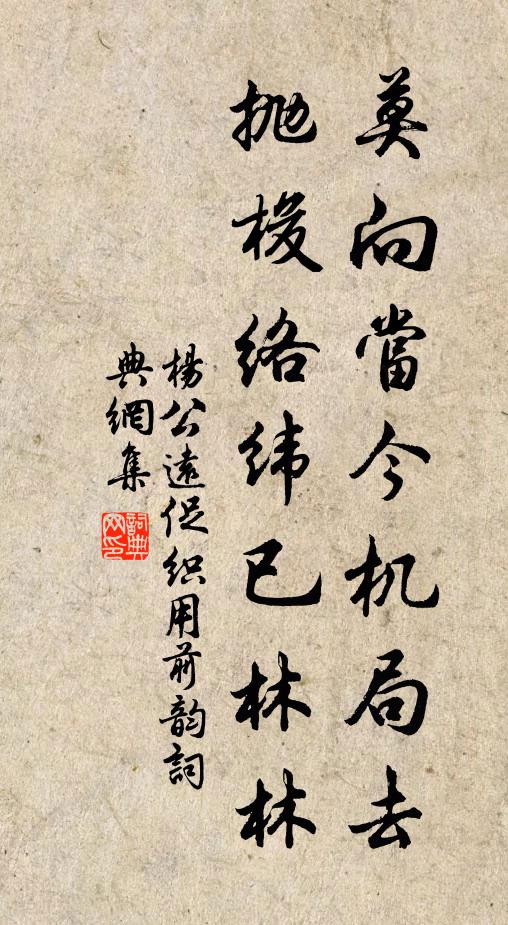 莫向當今机局去
拋梭絡緯已林林
楊公遠促织用前韵詞
典網集
詞典网印